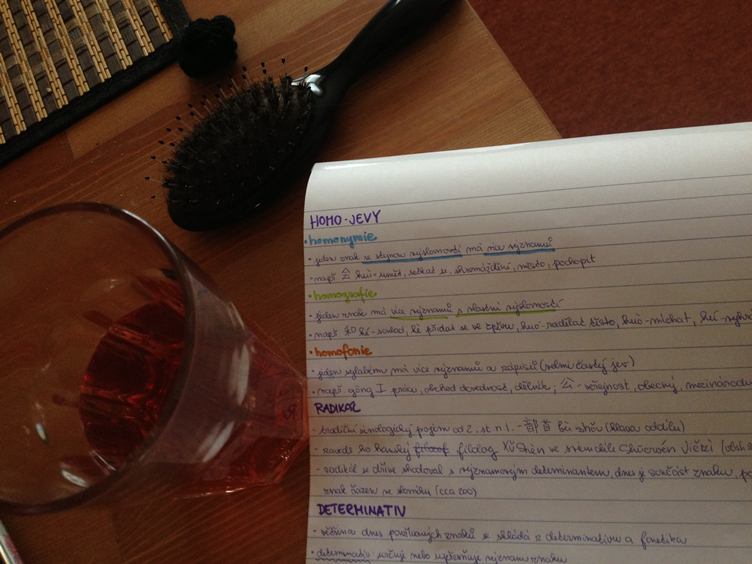 HOMO-JEVY
• homonymie
• jeden znak se stejnou výslovností má více významů
• např 会 huì - umět, setkat se, shromáždění, město, pochopit
• homografie
• jeden znak má více významů s vlastní výslovností
• např 和 hé - soulad, hè přidat se ve zpěvu, huó - zadělat těsto, huò - míchat, hú -
• homofonie
• jedna slabika má více významů a zápisů (velmi častý jev)
• např gōng 工 práce, obchod dovednost, dělník; 公 - veřejnost, obecný, mezinárodní
RADIKÁL
- tradiční sinologický pojem od 2. st n. l. - 部首 bù shǒu (hlava oddílu)
- zavedl ho hanský filolog Xǔ Shèn ve slovníku Shuōwén Jiězì
- radikál se dříve shodoval s významovým determinantem, dnes je součást znaku,
znak řazen ve slovníku (cca 200)
DETERMINATIV
• většina dnes používaných znaků se skládá z determinativu a fonetika
• determinativ určuje nebo upřesňuje význam znaku